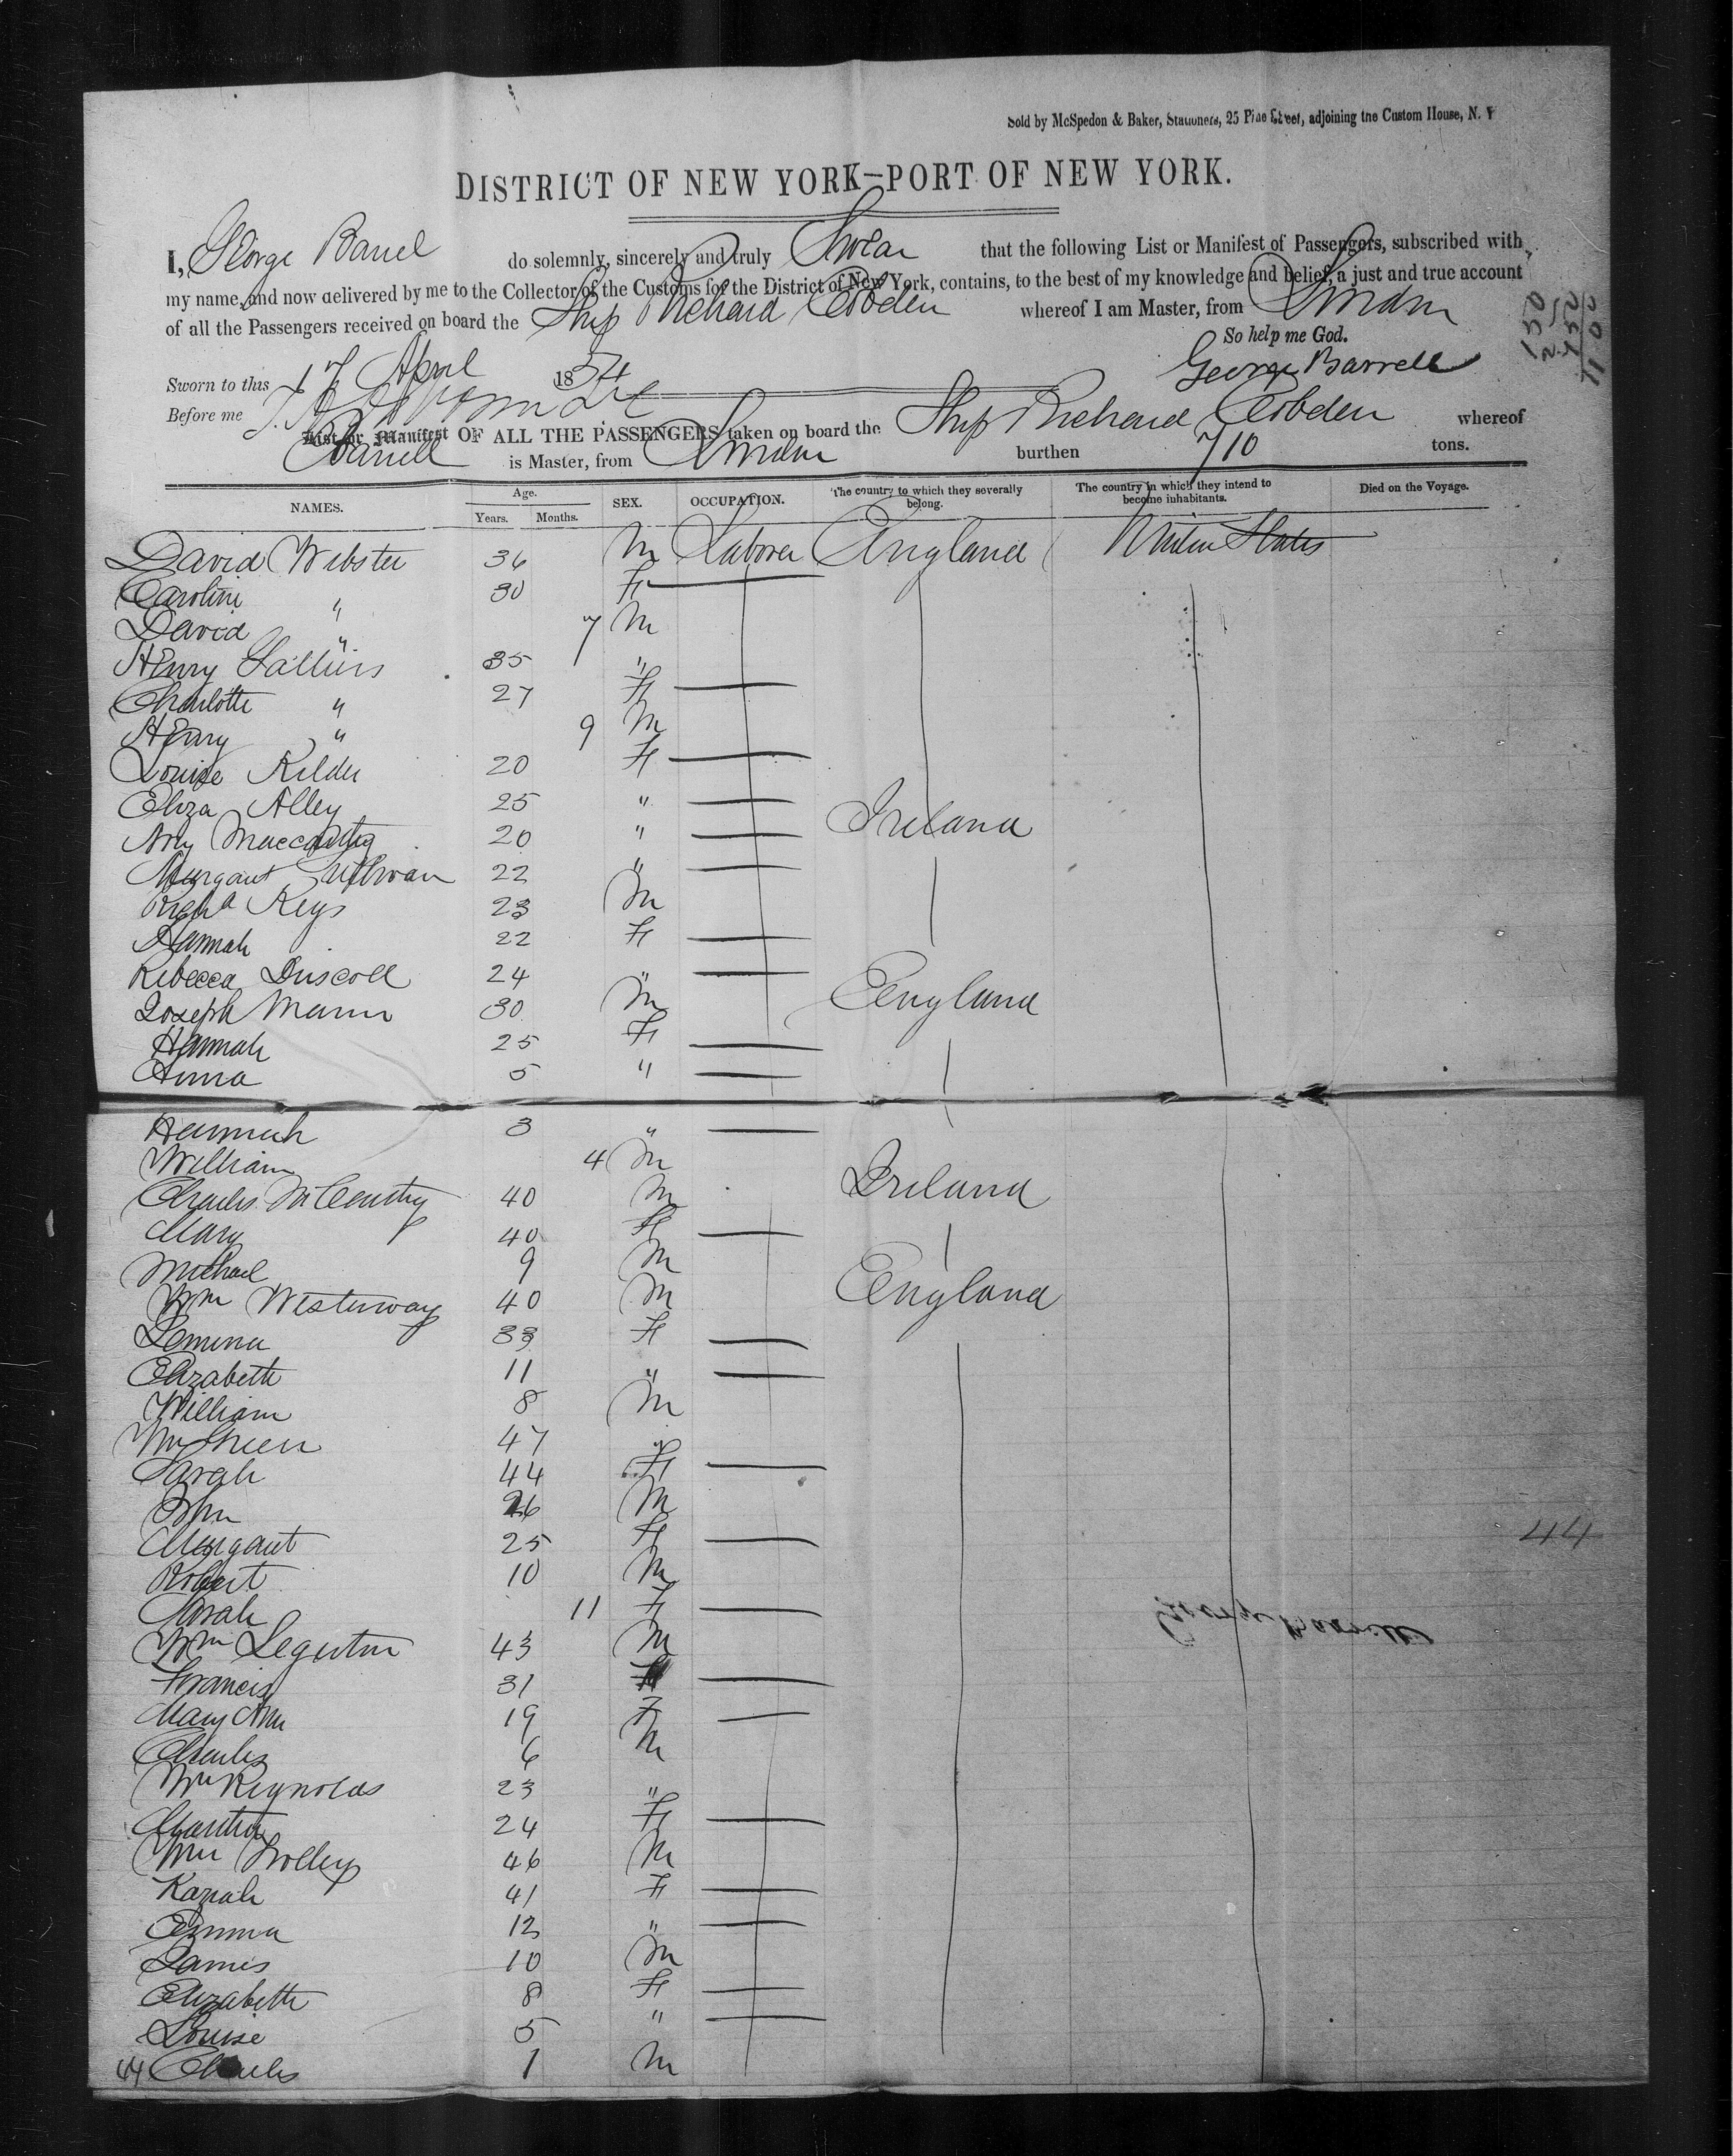 Sold by McSpedon & Baker, Stationers, 25 Pine Street, adjoining the Custom House, N. Y
DISTRICT OF NEW YORK—PORT OF NEW YORK.
I, George Barrel do solemnly, sincerely and truly Swear that the following List or Manifest of Passengers, subscribed with
my name, and now delivered by me to the Collector of the Customs for the District of New York, contains, to the best of my knowledge and belief, a just and true account
of all the Passengers received on board the Ship Richard Cobden whereof I am Master, from London
So help me God.
Sworn to this 17 April 1854 George Barrell
Before me
List or Manifest OF ALL THE PASSENGERS taken on board the Ship Richard Cobden whereof
Barrell is Master, from London burthen 710 tons.
NAMES. Age. Years. Months. SEX. OCCUPATION. The country to which they severally belong. The country in which they intend to become inhabitants. Died on the Voyage.
David Webster 36 M Laborer England United States
Caroline " 30 F
David " 7 M
Henry 35 "
Charlotte " 27 F
Henry " 9 M
Louise 20 F
Eliza Alley 25 " Ireland
20 "
Margaret Sullivan 22 "
Richd Keys 23 M
Hannah 22 F
Rebecca Driscoll 24 "
Joseph Mann 30 M England
Hannah 25 F
Anna 5 "
Hannah 3 "
William 4 M
Charles McCarthy 40 M Ireland
Mary 40 F
Michael 9 M
Wm Westerway 40 M England
33 F
Elizabeth 11 "
William 8 M
Wm Green 47 "
Sarah 44 F
John 26 M
Margaret 25 F 44
Robert 10 M
Sarah 11 F
Wm 43 M George Barrell
Francis 31 F
Mary Ann 19 F
Charles 6 M
Wm Reynolds 23 "
Martha 24 F
Wm 46 M
Kaziah 41 F
Emma 12 "
James 10 M
Elizabeth 8 F
Louise 5 "
44 Charles 1 M